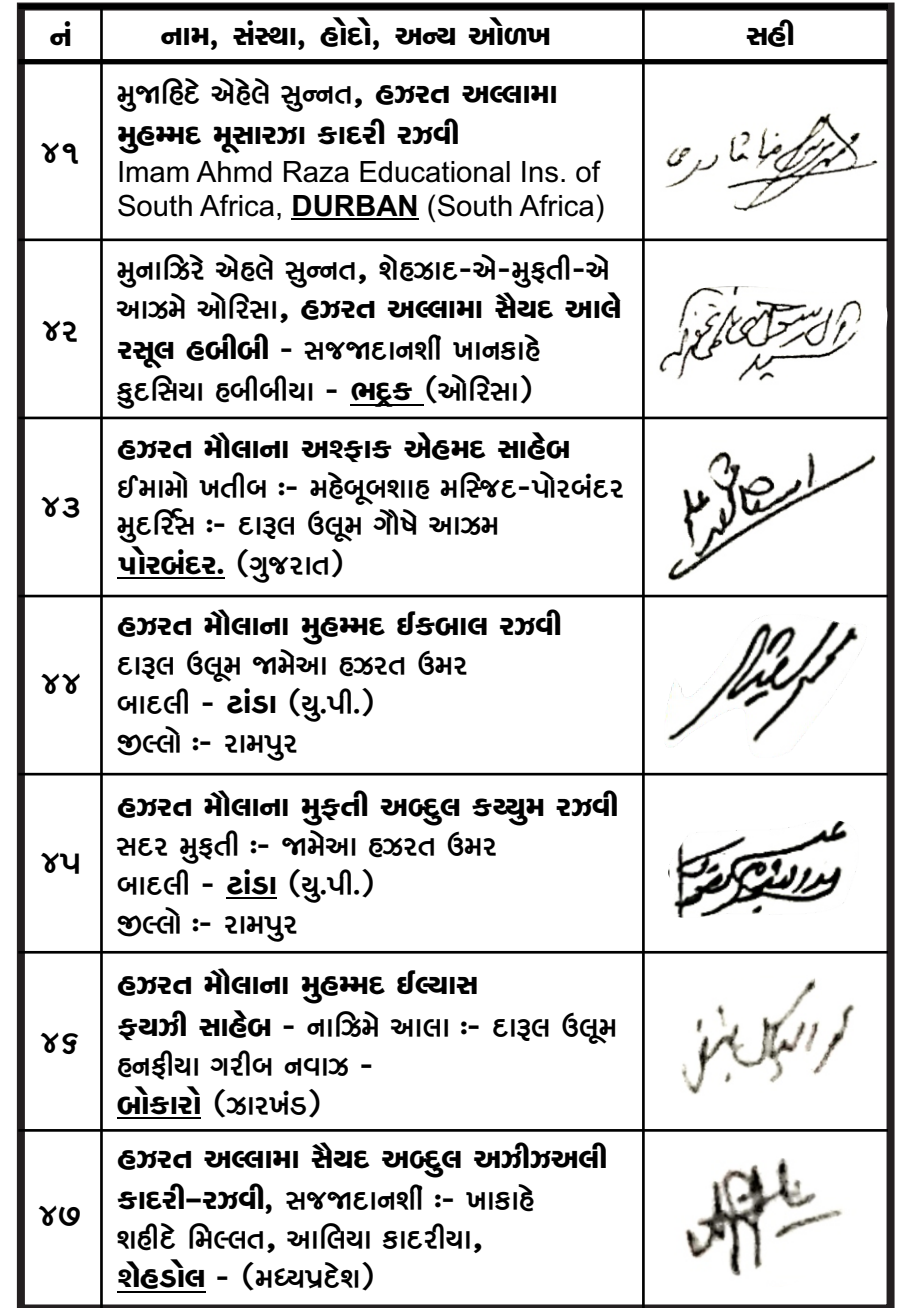 નં નામ, સંસ્થા, હોદો, અન્ય ઓળખ સહી
૪૧
મુજાહિદે એહેલે સુન્નત, હઝરત અલ્લામા
મુહમ્મદ મૂસારઝા કાદરી રઝવી
Imam Ahmd Raza Educational Ins. of
South Africa, DURBAN (South Africa)
૪૨
મુનાઝિરે એહલે સુન્નત, શેહઝાદ-એ-મુફતી-એ
આઝમે ઓરિસા, હઝરત અલ્લામા સૈયદ આલે
રસૂલ હબીબી - સજજાદાનશીં ખાનકાહે
કુદસિયા હબીબીયા - ભદ્રક (ઓરિસા)
૪૩
હઝરત મૌલાના અશ્ફાક એહમદ સાહેબ
ઈમામો ખતીબ :- મહેબૂબશાહ મસ્જિદ-પોરબંદર
મુદર્રિસ :- દારૂલ ઉલૂમ ગૌષે આઝમ
પોરબંદર. (ગુજરાત)
૪૪
હઝરત મૌલાના મુહમ્મદ ઈકબાલ રઝવી
દારૂલ ઉલૂમ જામેઆ હઝરત ઉમર
બાદલી - ટાંડા (યુ.પી.)
જીલ્લો :- રામપુર
૪૫
હઝરત મૌલાના મુફતી અબ્દુલ કય્યુમ રઝવી
સદર મુફતી :- જામેઆ હઝરત ઉમર
બાદલી - ટાંડા (યુ.પી.)
જીલ્લો :- રામપુર
૪૬
હઝરત મૌલાના મુહમ્મદ ઈલ્યાસ
ફયઝી સાહેબ - નાઝિમે આલા :- દારૂલ ઉલૂમ
હનફીયા ગરીબ નવાઝ -
બોકારો (ઝારખંડ)
૪૭
હઝરત અલ્લામા સૈયદ અબ્દુલ અઝીઝઅલી
કાદરી–રઝવી, સજજાદાનશીં :- ખાકાહે
શહીદે મિલ્લત, આલિયા કાદરીયા,
શેહડોલ - (મધ્યપ્રદેશ)